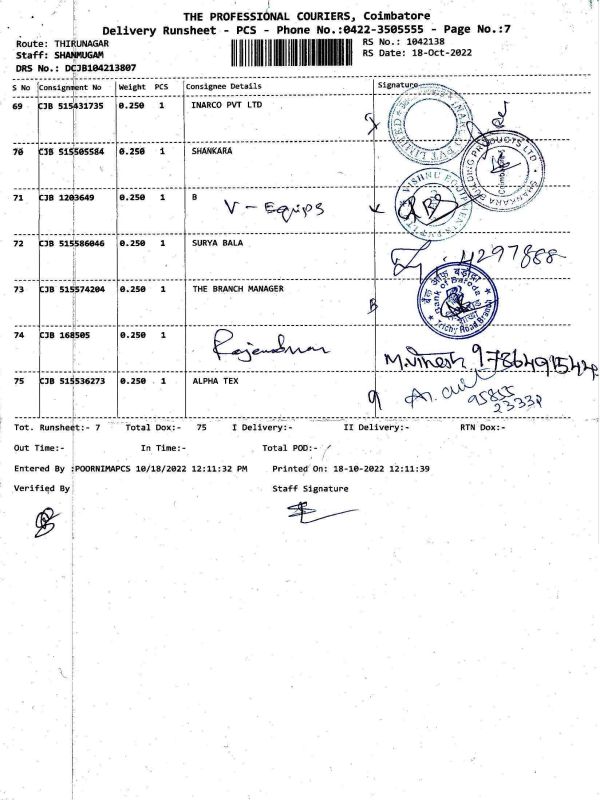 THE PROFESSIONAL COURIERS, Coimbatore
Delivery Runsheet - PCS - Phone No.:0422-3505555 - Page No.:7
Route: THIRUNAGAR
RS No.: 1042138
Staff: SHANMUGAM
RS Date: 18-Oct-2022
DRS No.: DCJB104213807
S No Consignment No Weight PCS Consignee Details Signature
69 CJB 515431735 0.250 1 INARCO PVT LTD
INARCO PVT LIMITED
70 CJB 515505584 0.250 1 SHANKARA
SHANKARA BUILDING PRODUCTS LTD
71 CJB 1203649 0.250 1 B
V - Equips
72 CJB 515586046 0.250 1 SURYA BALA
4297888
73 CJB 515574204 0.250 1 THE BRANCH MANAGER
बैंक ऑफ़ बड़ौदा
Bank of Baroda
Trichy Road Branch
74 CJB 168505 0.250 1
75 CJB 515536273 0.250 1 ALPHA TEX
95855
Tot. Runsheet:- 7 Total Dox:- 75 I Delivery:- II Delivery:- RTN Dox:-
Out Time:- In Time:- Total POD:-
Entered By :POORNIMAPCS 10/18/2022 12:11:32 PM Printed On: 18-10-2022 12:11:39
Verified By Staff Signature